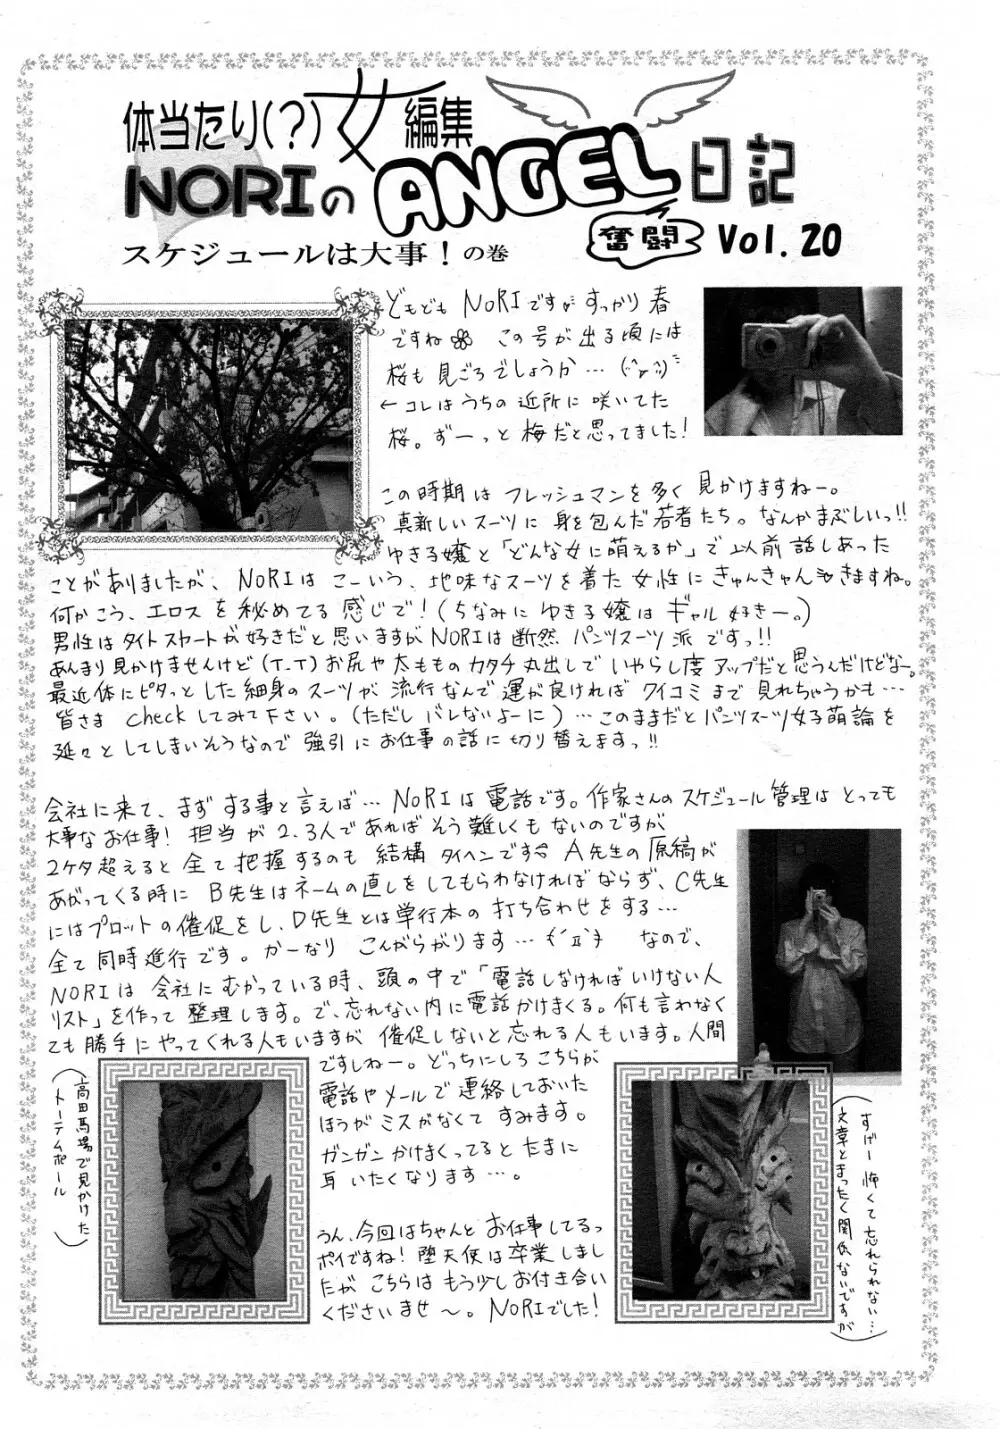 体当たり(?)女編集
NORIのANGEL日記
奮闘 Vol.20
スケジュールは大事!の巻
どもども NORIです すっかり春
ですね この号が出る頃には
桜も見ごろでしょうか…
←コレはうちの近所に咲いてた
桜。ずーっと梅だと思ってました!
この時期は フレッシュマンを多く見かけますねー。
真新しいスーツに身を包んだ若者たち。なんかまぶしいっ!!
ゆき子嬢と「どんな女に萌えるか」で以前話しあった
ことがありましたが、NORIは こーいう、地味なスーツを着た女性にきゅんきゅんきますね。
何かこう、エロスを秘めてる感じで!(ちなみに ゆき子嬢は ギャル好きー。)
男性はタイトスカートが好きだと思いますがNORIは断然 パンツスーツ派ですっ!!
あんまり見かけませんけど(T_T)お尻や太もものカタチ丸出しでいやらし度アップだと思うんだけどなー。
最近体にピタッとした細身のスーツが流行なんで運が良ければ クイコミまで見れちゃうかも…
皆さま checkしてみて下さい。(ただし バレないよーに)…このままだとパンツスーツ女子萌論を
延々としてしまいそうなので 強引にお仕事の話に切り替えますっ!!
会社に来て、まずする事と言えば… NORIは電話です。作家さんのスケジュール管理は とっても
大事なお仕事! 担当が2、3人であれば そう難しくもないのですが
2ケタ超えると全て把握するのも 結構 タイヘンです A先生の原稿が
あがってくる時に B先生はネームの直しをしてもらわなければならず、C先生
にはプロットの催促をし、D先生とは単行本の打ち合わせをする…
全て同時進行です。かーなり こんがらがります… なので、
NORIは 会社にむかっている時、頭の中で「電話しなければいけない人
リスト」を作って整理します。で、忘れない内に電話かけまくる。何も言わなく
ても勝手にやってくれる人もいますが 催促しないと忘れる人もいます。人間
ですしねー。どっちにしろこちらが
電話やメールで連絡しておいた
ほうがミスがなくてすみます。
ガンガンかけまくってると たまに
耳いたくなります…。
うん、今回はちゃんと お仕事してるっ
ポイですね! 堕天使は卒業しまし
たが こちらは もう少しお付き合い
くださいませ〜。NORIでした!
(高田馬場で見かけた
トーテムポール)
(すげー怖くて忘れられない…
文章とまったく関係ないですが)